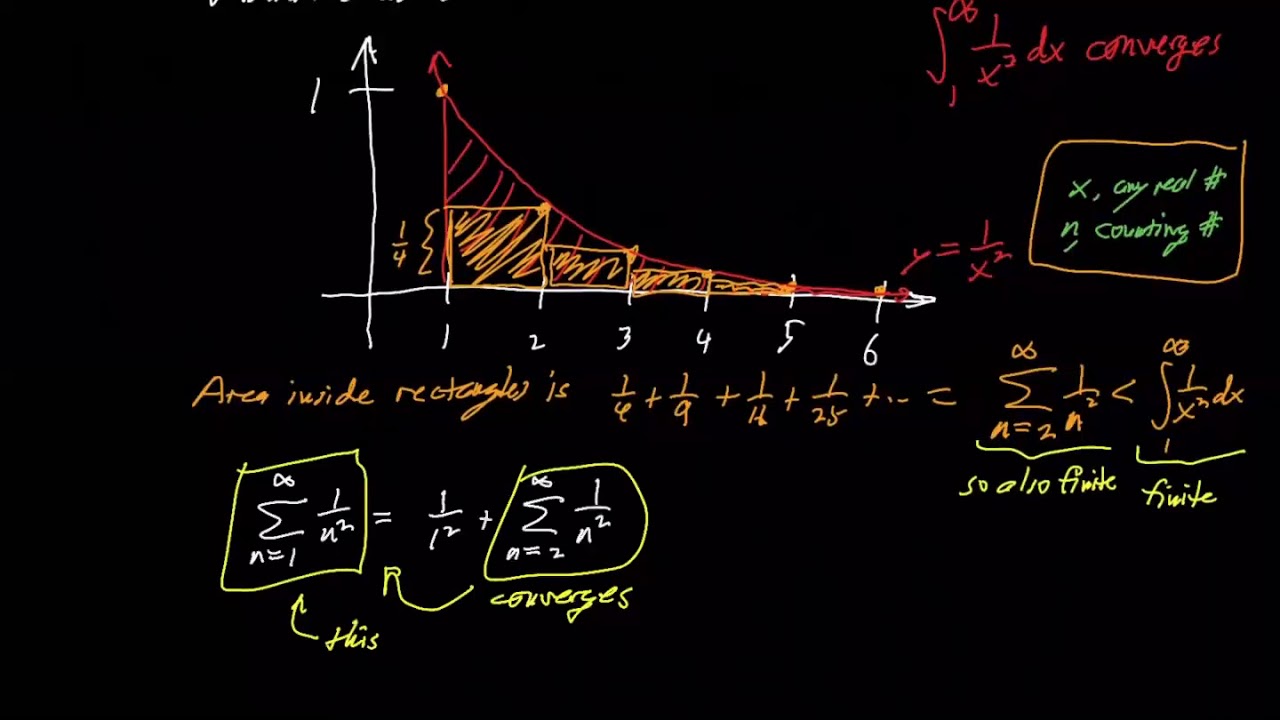 ∫₁^∞ 1/x² dx converges
1
x, any real #
n counting #
1/4
y = 1/x²
1 2 3 4 5 6
Area inside rectangles is 1/4 + 1/9 + 1/16 + 1/25 + ... = ∑_{n=2}^∞ 1/n² < ∫₁^∞ 1/x² dx
so also finite finite
∑_{n=1}^∞ 1/n² = 1/1² + ∑_{n=2}^∞ 1/n²
converges
this